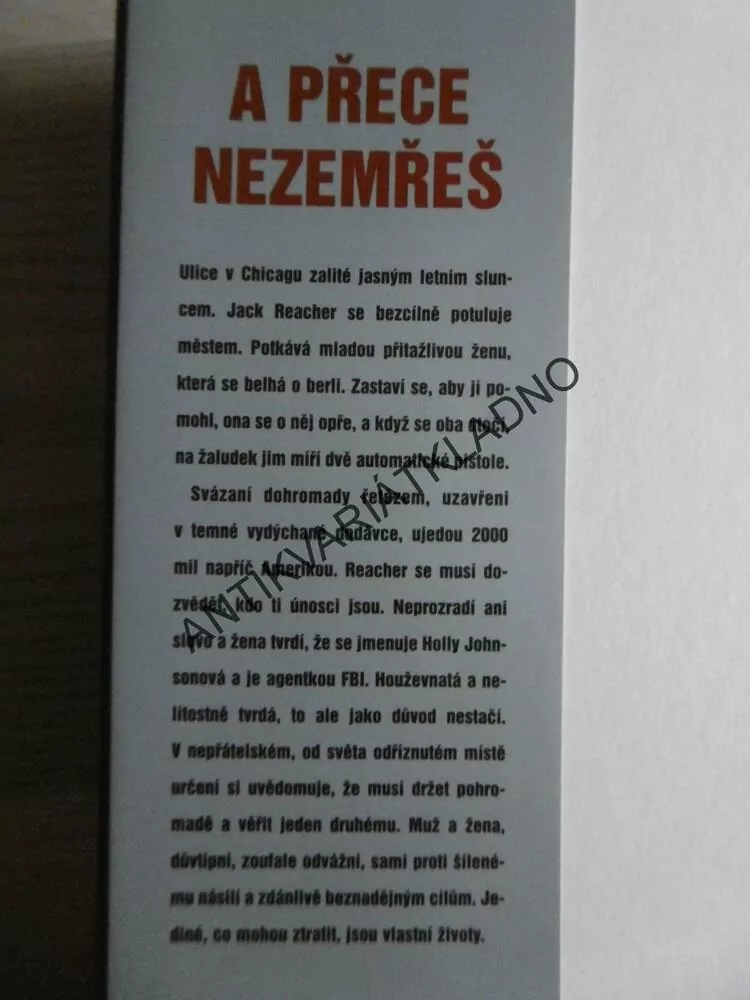 A PŘECE
NEZEMŘEŠ
Ulice v Chicagu zalité jasným letním slun-
cem. Jack Reacher se bezcílně potuluje
městem. Potkává mladou přitažlivou ženu,
která se belhá o berli. Zastaví se, aby jí po-
mohl, ona se o něj opře, a když se oba otočí,
na žaludek jim míří dvě automatické pistole.
Svázaní dohromady řetězem, uzavřeni
v temné vydýchané dodávce, ujedou 2000
mil napříč Amerikou. Reacher se musí do-
zvědět, kdo ti únosci jsou. Neprozradí ani
slovo a žena tvrdí, že se jmenuje Holly John-
sonová a je agentkou FBI. Houževnatá a ne-
lítostně tvrdá, to ale jako důvod nestačí.
V nepřátelském, od světa odříznutém místě
určení si uvědomuje, že musí držet pohro-
madě a věřit jeden druhému. Muž a žena,
důvtipní, zoufale odvážní, sami proti šílené-
mu násilí a zdánlivě beznadějným cílům. Je-
diné, co mohou ztratit, jsou vlastní životy.
ANTIKVARIÁTKLADNO